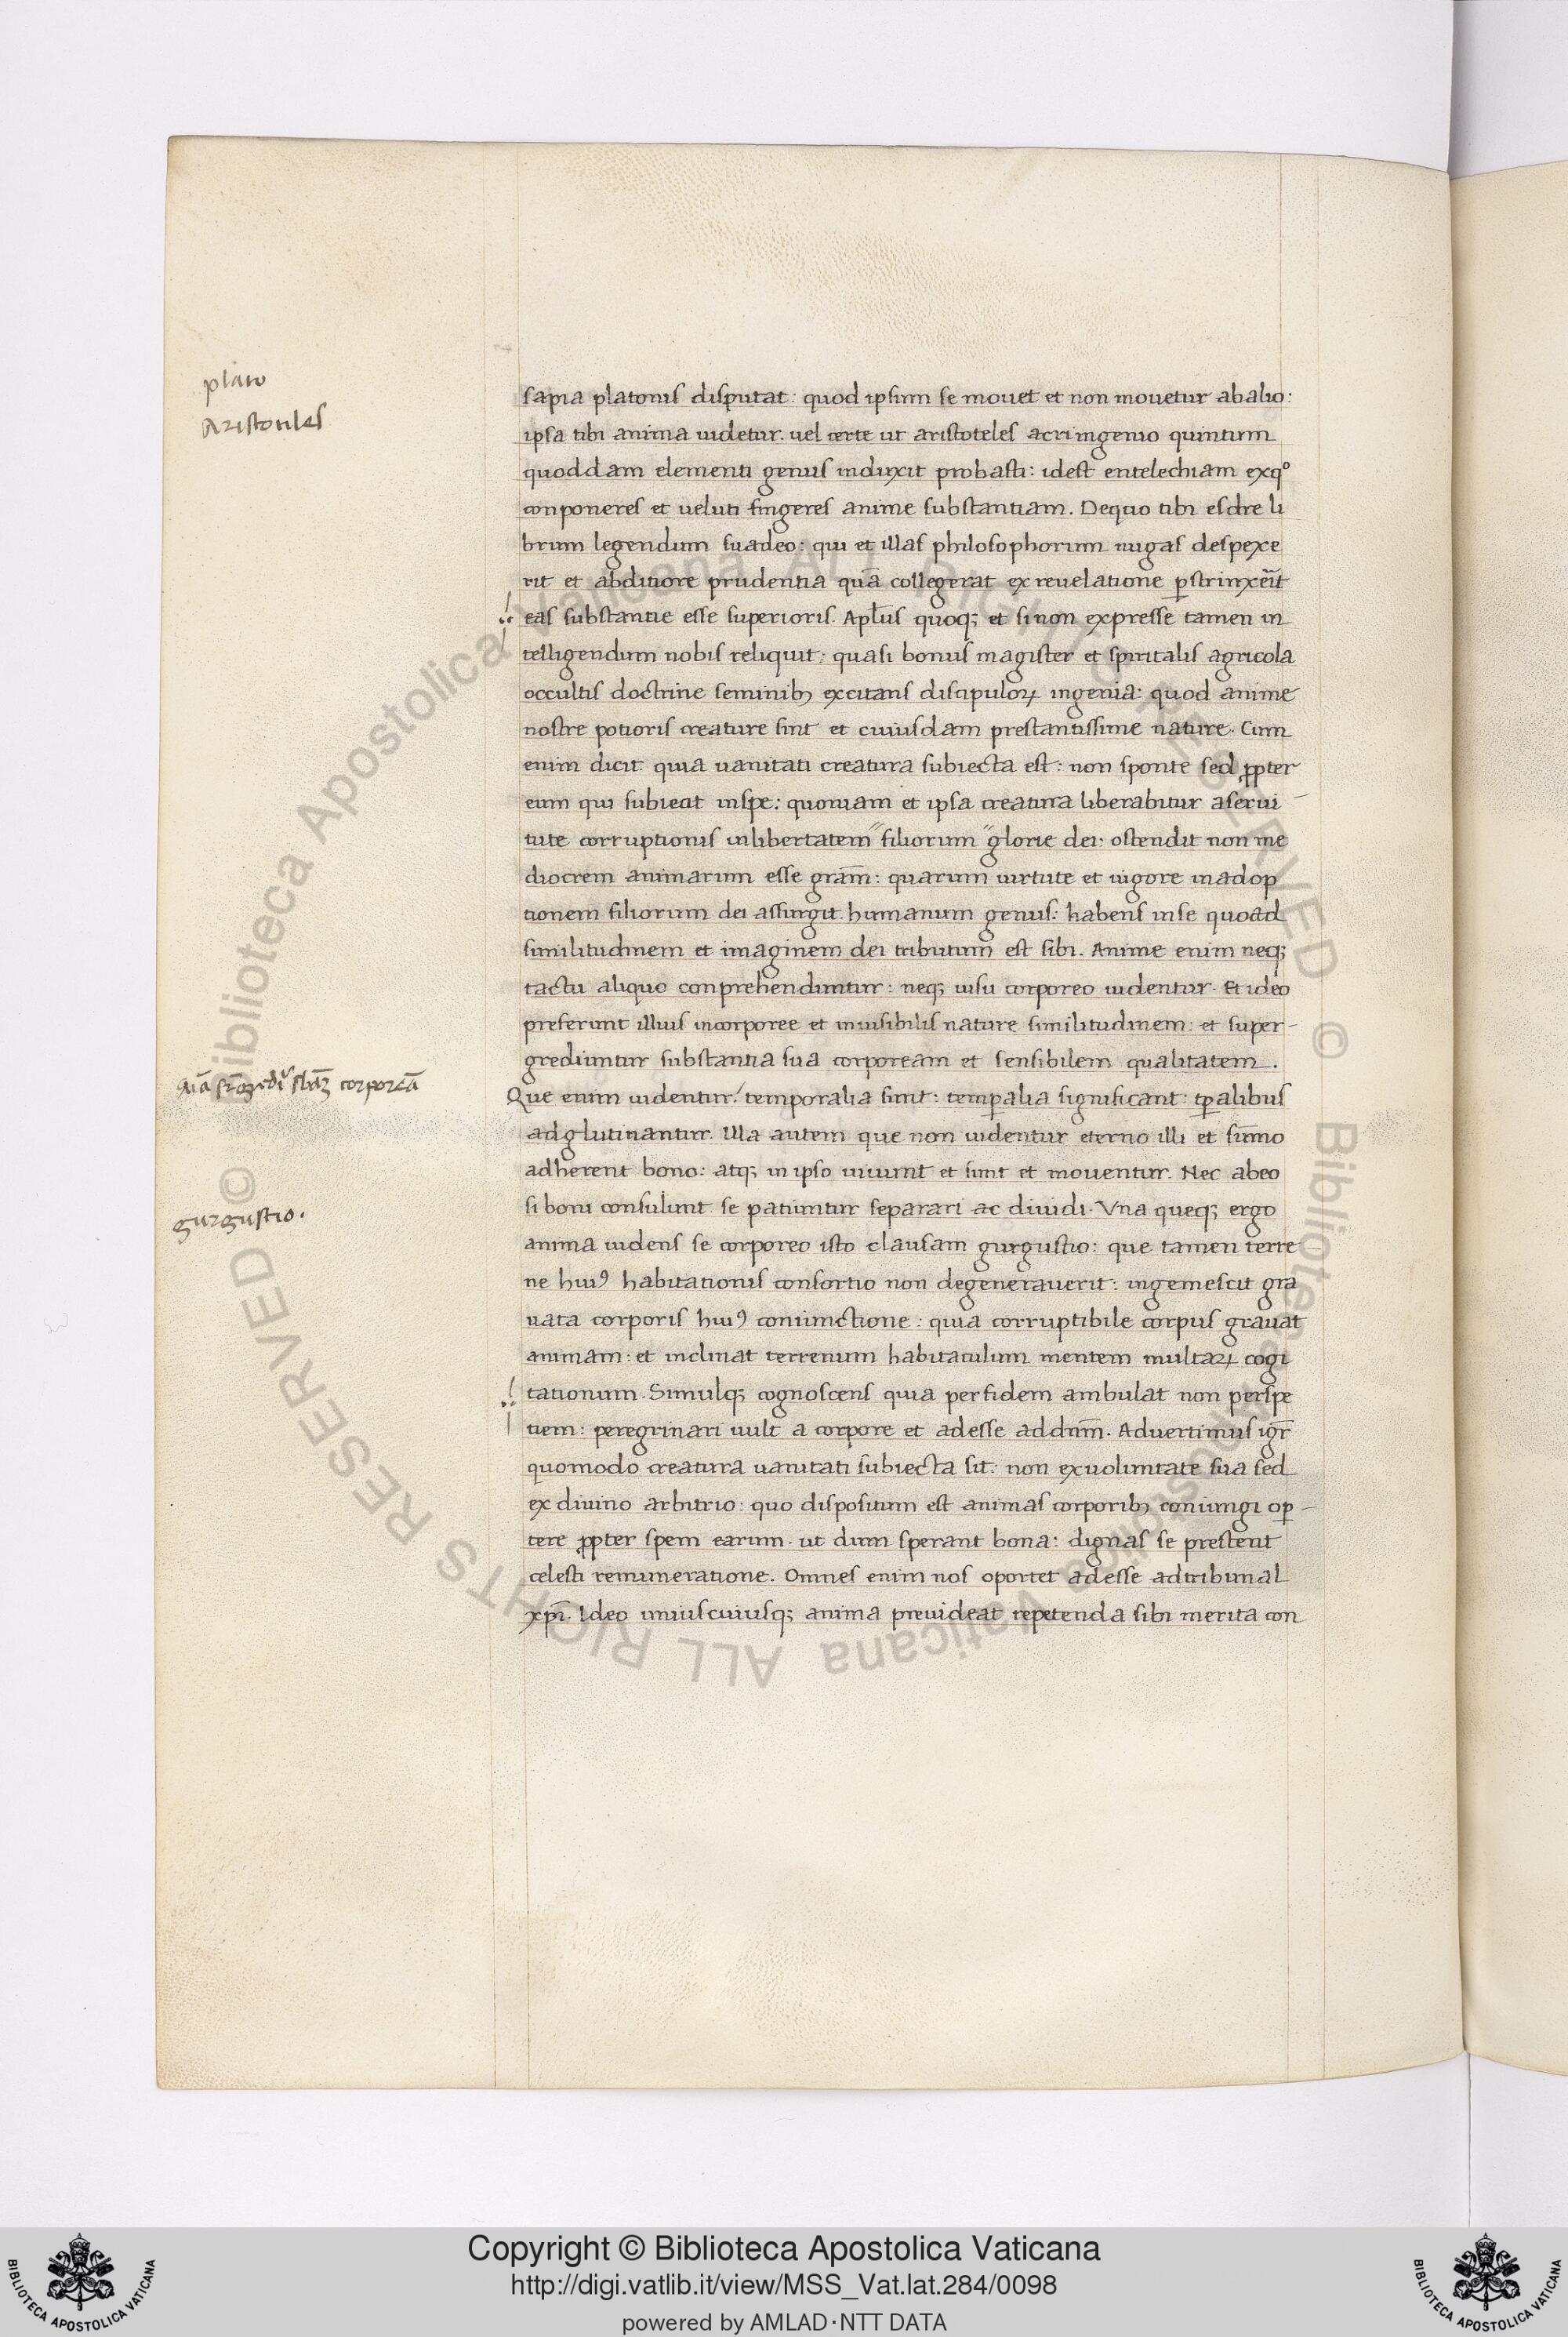 plato
Aristotiles
sapia platonis disputat: quod ipsum se mouet et non mouetur ab alio:
ipsa tibi anima uidetur. uel certe ut aristoteles acri ingenio quintum
quoddam elementi genus induxit probasti: idest entelechiam ex qº
conponeres et ueluti fingeres anime substantiam. De quo tibi esdre li
brum legendum suadeo: qui et illas philosophorum nugas despexe
rit et abditiore prudentia quā collegerat ex reuelatione ꝑstrinxerit
eas substantie esse superioris. Apłus quoq; et si non expresse tamen in
telligendum nobis reliquit: quasi bonus magister et spiritalis agricola
occultis doctrine seminibꝫ excitans discipuloꝝ ingenia: quod anime
nostre potioris creature sint et cuiusdam prestantissime nature. Cum
enim dicit quia uanitati creatura subiecta est: non sponte sed ꝓpter
eum qui subiecit in spe: quoniam et ipsa creatura liberabitur a serui
tute corruptionis in libertatem ʺ filiorum ʺ glorie dei: ostendit non me
diocrem animarum esse grām̄: quarum uirtute et uigore in adop
tionem filiorum dei assurgit humanum genus: habens in se quod ad
similitudinem et imaginem dei tributum est sibi. Anime enim neq;
tactu aliquo conprehenduntur: neq; uisu corporeo uidentur. Et ideo
preferunt illius incorporee et inuisibilis nature similitudinem: et super-
grediuntur substantia sua corpoream et sensibilem qualitatem.
corporeā
Que enim uidentur: temporalia sunt: temꝑalia significant: tꝑalibus
adglutinantur. Illa autem que non uidentur eterno illi et sūmo
adherent bono: atq; in ipso uiuunt et sunt et mouentur. Nec ab eo
gurgustio.
si boni consulunt se patiuntur separari ac diuidi. Vna queq; ergo
anima uidens se corporeo isto clausam gurgustio: que tamen terre
ne huiꝰ habitationis consortio non degenerauerit: ingemescit gra
uata corporis huiꝰ coniunctione: quia corruptibile corpus grauat
animam: et inclinat terrenum habitaculum mentem multaꝝ cogi
tationum. Simulq; cognoscens quia per fidem ambulat non per spe
tiem: peregrinari uult a corpore et adesse ad dnm̄. Aduertimus igr̄
quomodo creatura uanitati subiecta sit: non ex uoluntate sua sed
ex diuino arbitrio: quo dispositum est animas corporibꝫ coniungi oꝑ-
tere ꝓpter spem earum. ut dum sperant bona: dignas se prestent
celesti remuneratione. Omnes enim nos oportet adesse ad tribunal
xpī. Ideo uniuscuiusq; anima preuideat repetenda sibi merita con
© Biblioteca Apostolica Vaticana ALL RIGHTS RESERVED © Biblioteca Apostolica Vaticana ALL RIGHTS RESERVED
Copyright © Biblioteca Apostolica Vaticana
http://digi.vatlib.it/view/MSS_Vat.lat.284/0098
powered by AMLAD·NTT DATA
BIBLIOTECA APOSTOLICA VATICANA
BIBLIOTECA APOSTOLICA VATICANA